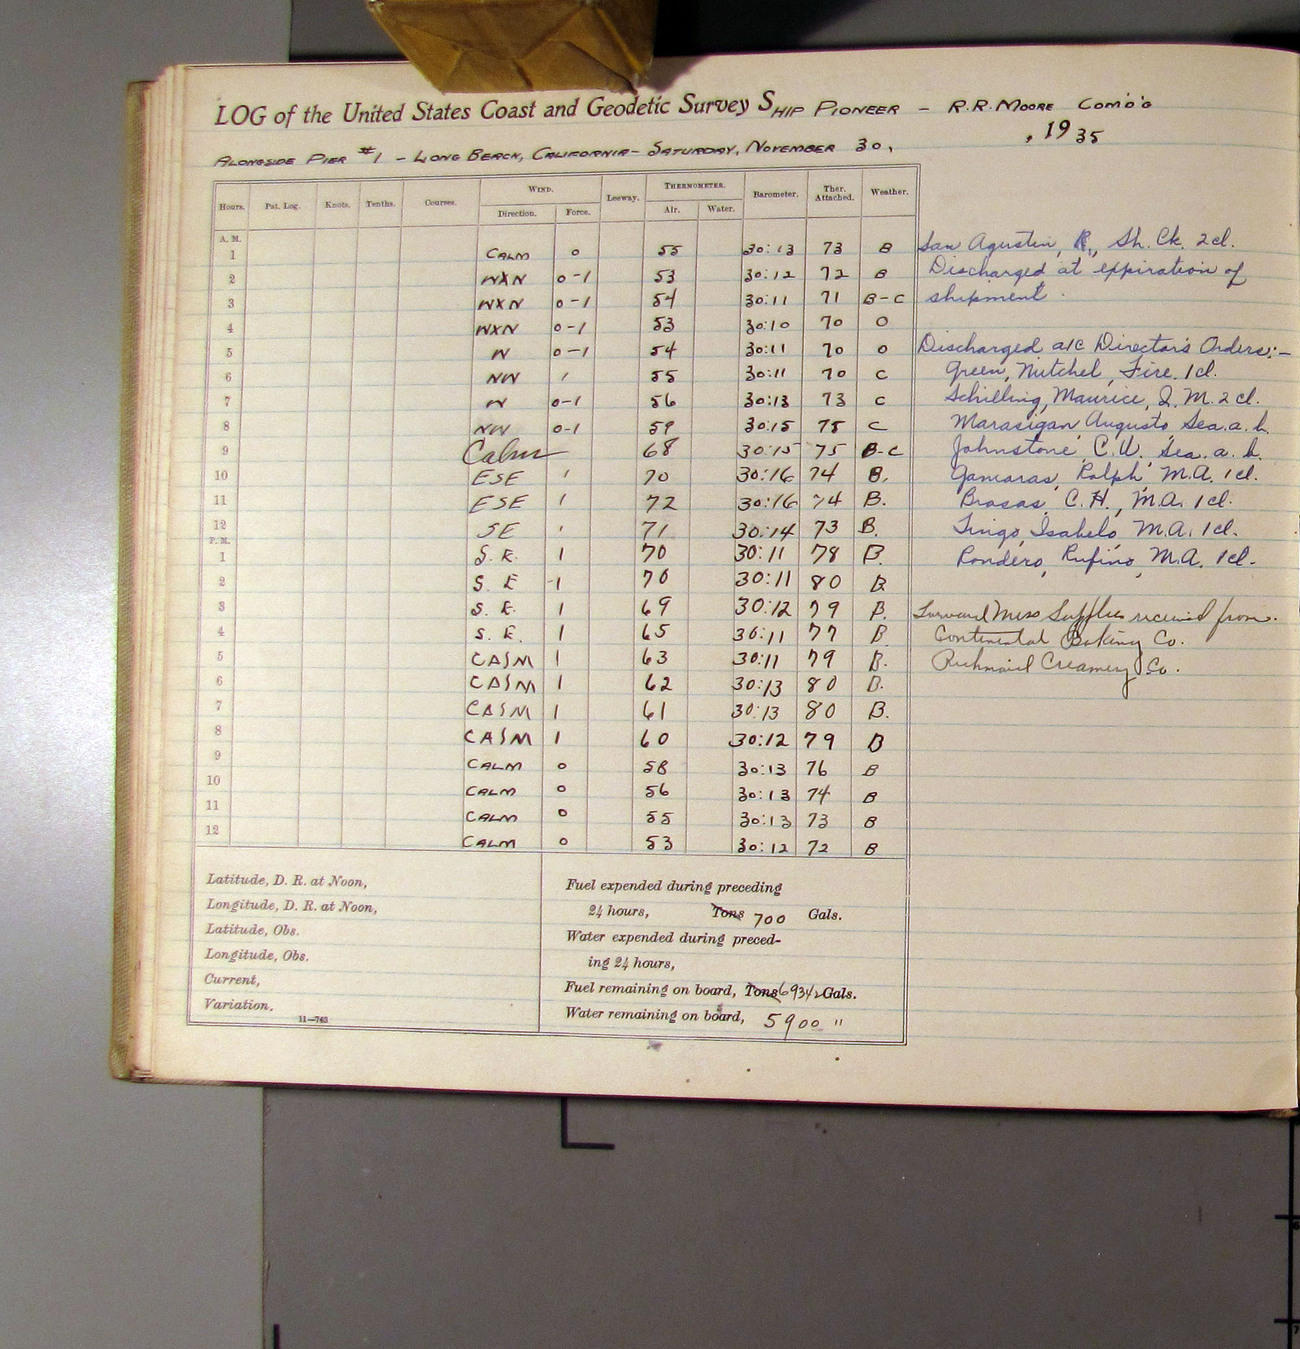 LOG of the United States Coast and Geodetic Survey SHIP PIONEER – R.R. MOORE COM'D'G
ALONGSIDE PIER #1 – LONG BEACH, CALIFORNIA – SATURDAY, NOVEMBER 30, , 1935
Hours. Pat. Log. Knots. Tenths. Courses. WIND. Leeway. THERMOMETER. Barometer. Ther. Attached. Weather.
Direction. Force. Air. Water.
A. M.
1 CALM 0 55 30:13 73 B
2 WXN 0-1 53 30:12 72 B
3 WXN 0-1 54 30:11 71 B-C
4 WXN 0-1 53 30:10 70 O
5 W 0-1 54 30:11 70 O
6 NW 1 55 30:11 70 C
7 W 0-1 56 30:13 73 C
8 NW 0-1 59 30:15 75 C
9 Calm 68 30:15 75 B-C
10 ESE 1 70 30:16 74 B.
11 ESE 1 72 30:16 74 B.
12 SE 1 71 30:14 73 B.
P. M.
1 S. E. 1 70 30:11 78 B.
2 S. E 1 70 30:11 80 B
3 S. E. 1 69 30:12 79 B.
4 S. E. 1 65 30:11 77 B
5 CALM 1 63 30:11 79 B.
6 CALM 1 62 30:13 80 B.
7 CALM 1 61 30:13 80 B.
8 CALM 1 60 30:12 79 B
9 CALM 0 58 30:13 76 B
10 CALM 0 56 30:13 74 B
11 CALM 0 55 30:13 73 B
12 CALM 0 53 30:12 72 B
San Agustin, R., Sh. Ck. 2cl.
Discharged at expiration of
shipment.
Discharged a/c Director's Orders:–
Green, Mitchel, Fire. 1cl.
Schilling, Maurice, Q.M. 2cl.
Marasigan, Augusto Sea. a. b.
Johnstone, C.W. Sea. a. b.
Ralph, M.A. 1cl.
C.H., M.A. 1cl.
Isabelo, M.A. 1cl.
Rondero, Rufino, M.A. 1cl.
Mess Supplies received from.
Continental Baking Co.
Creamery Co.
Latitude, D. R. at Noon,
Longitude, D. R. at Noon,
Latitude, Obs.
Longitude, Obs.
Current,
Variation.
11—743
Fuel expended during preceding
24 hours, Tons 700 Gals.
Water expended during preced-
ing 24 hours,
Fuel remaining on board, Tons 69342 Gals.
Water remaining on board, 5900 "